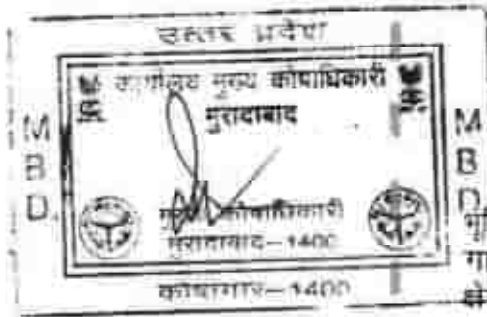 उत्तर प्रदेश
कार्यालय मुख्य कोषाधिकारी
मुरादाबाद
M
B
D.
M
B
D
कोषाधिकारी
मुरादाबाद–1400
कोषागार–1400